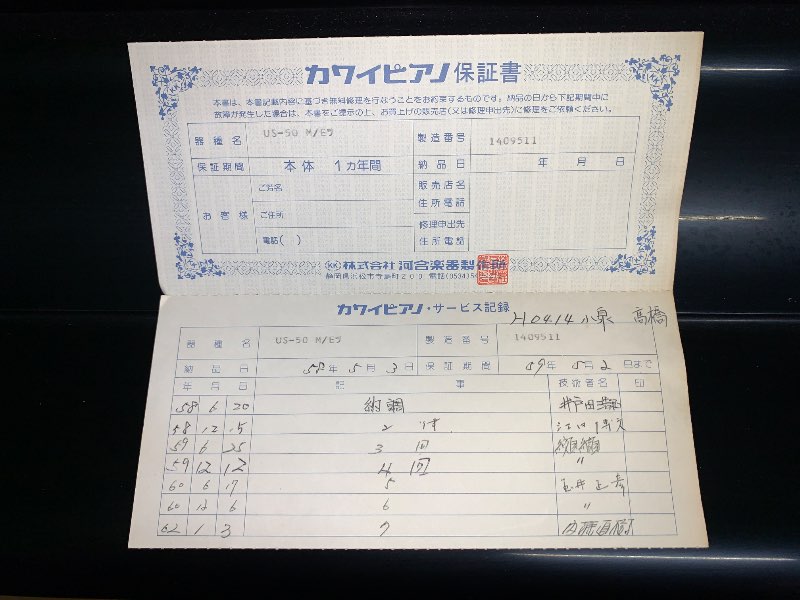 カワイピアノ 保証書
本書は、本書記載内容に基づき無料修理を行なうことをお約束するものです。納品の日から下記期間中に
故障が発生した場合は、本書をご提示の上、お買上げの販売店(又は修理申出先)に修理をご依頼ください。
器種名 US-50 M/Eラ 製造番号 1409511
保証期間 本体 1カ年間 納品日 年 月 日
お客様 ご芳名 販売店名
ご住所 住所電話
修理申出先
電話( ) 住所電話
KK 株式会社 河合楽器製作所
静岡県浜松市寺島町200 電話(0534)
カワイピアノ・サービス記録
H04.14 小泉 高橋
器種名 US-50 M/Eラ 製造番号 1409511
納品日 58年5月3日 保証期間 59年5月2日まで
年月日 記事 技術者名 印
58 6 20 納調
58 12 15 2
59 6 25 3 回
59 12 12 4 回 〃
60 6 17 5 玉井
60 12 6 6 〃
62 1 3 7